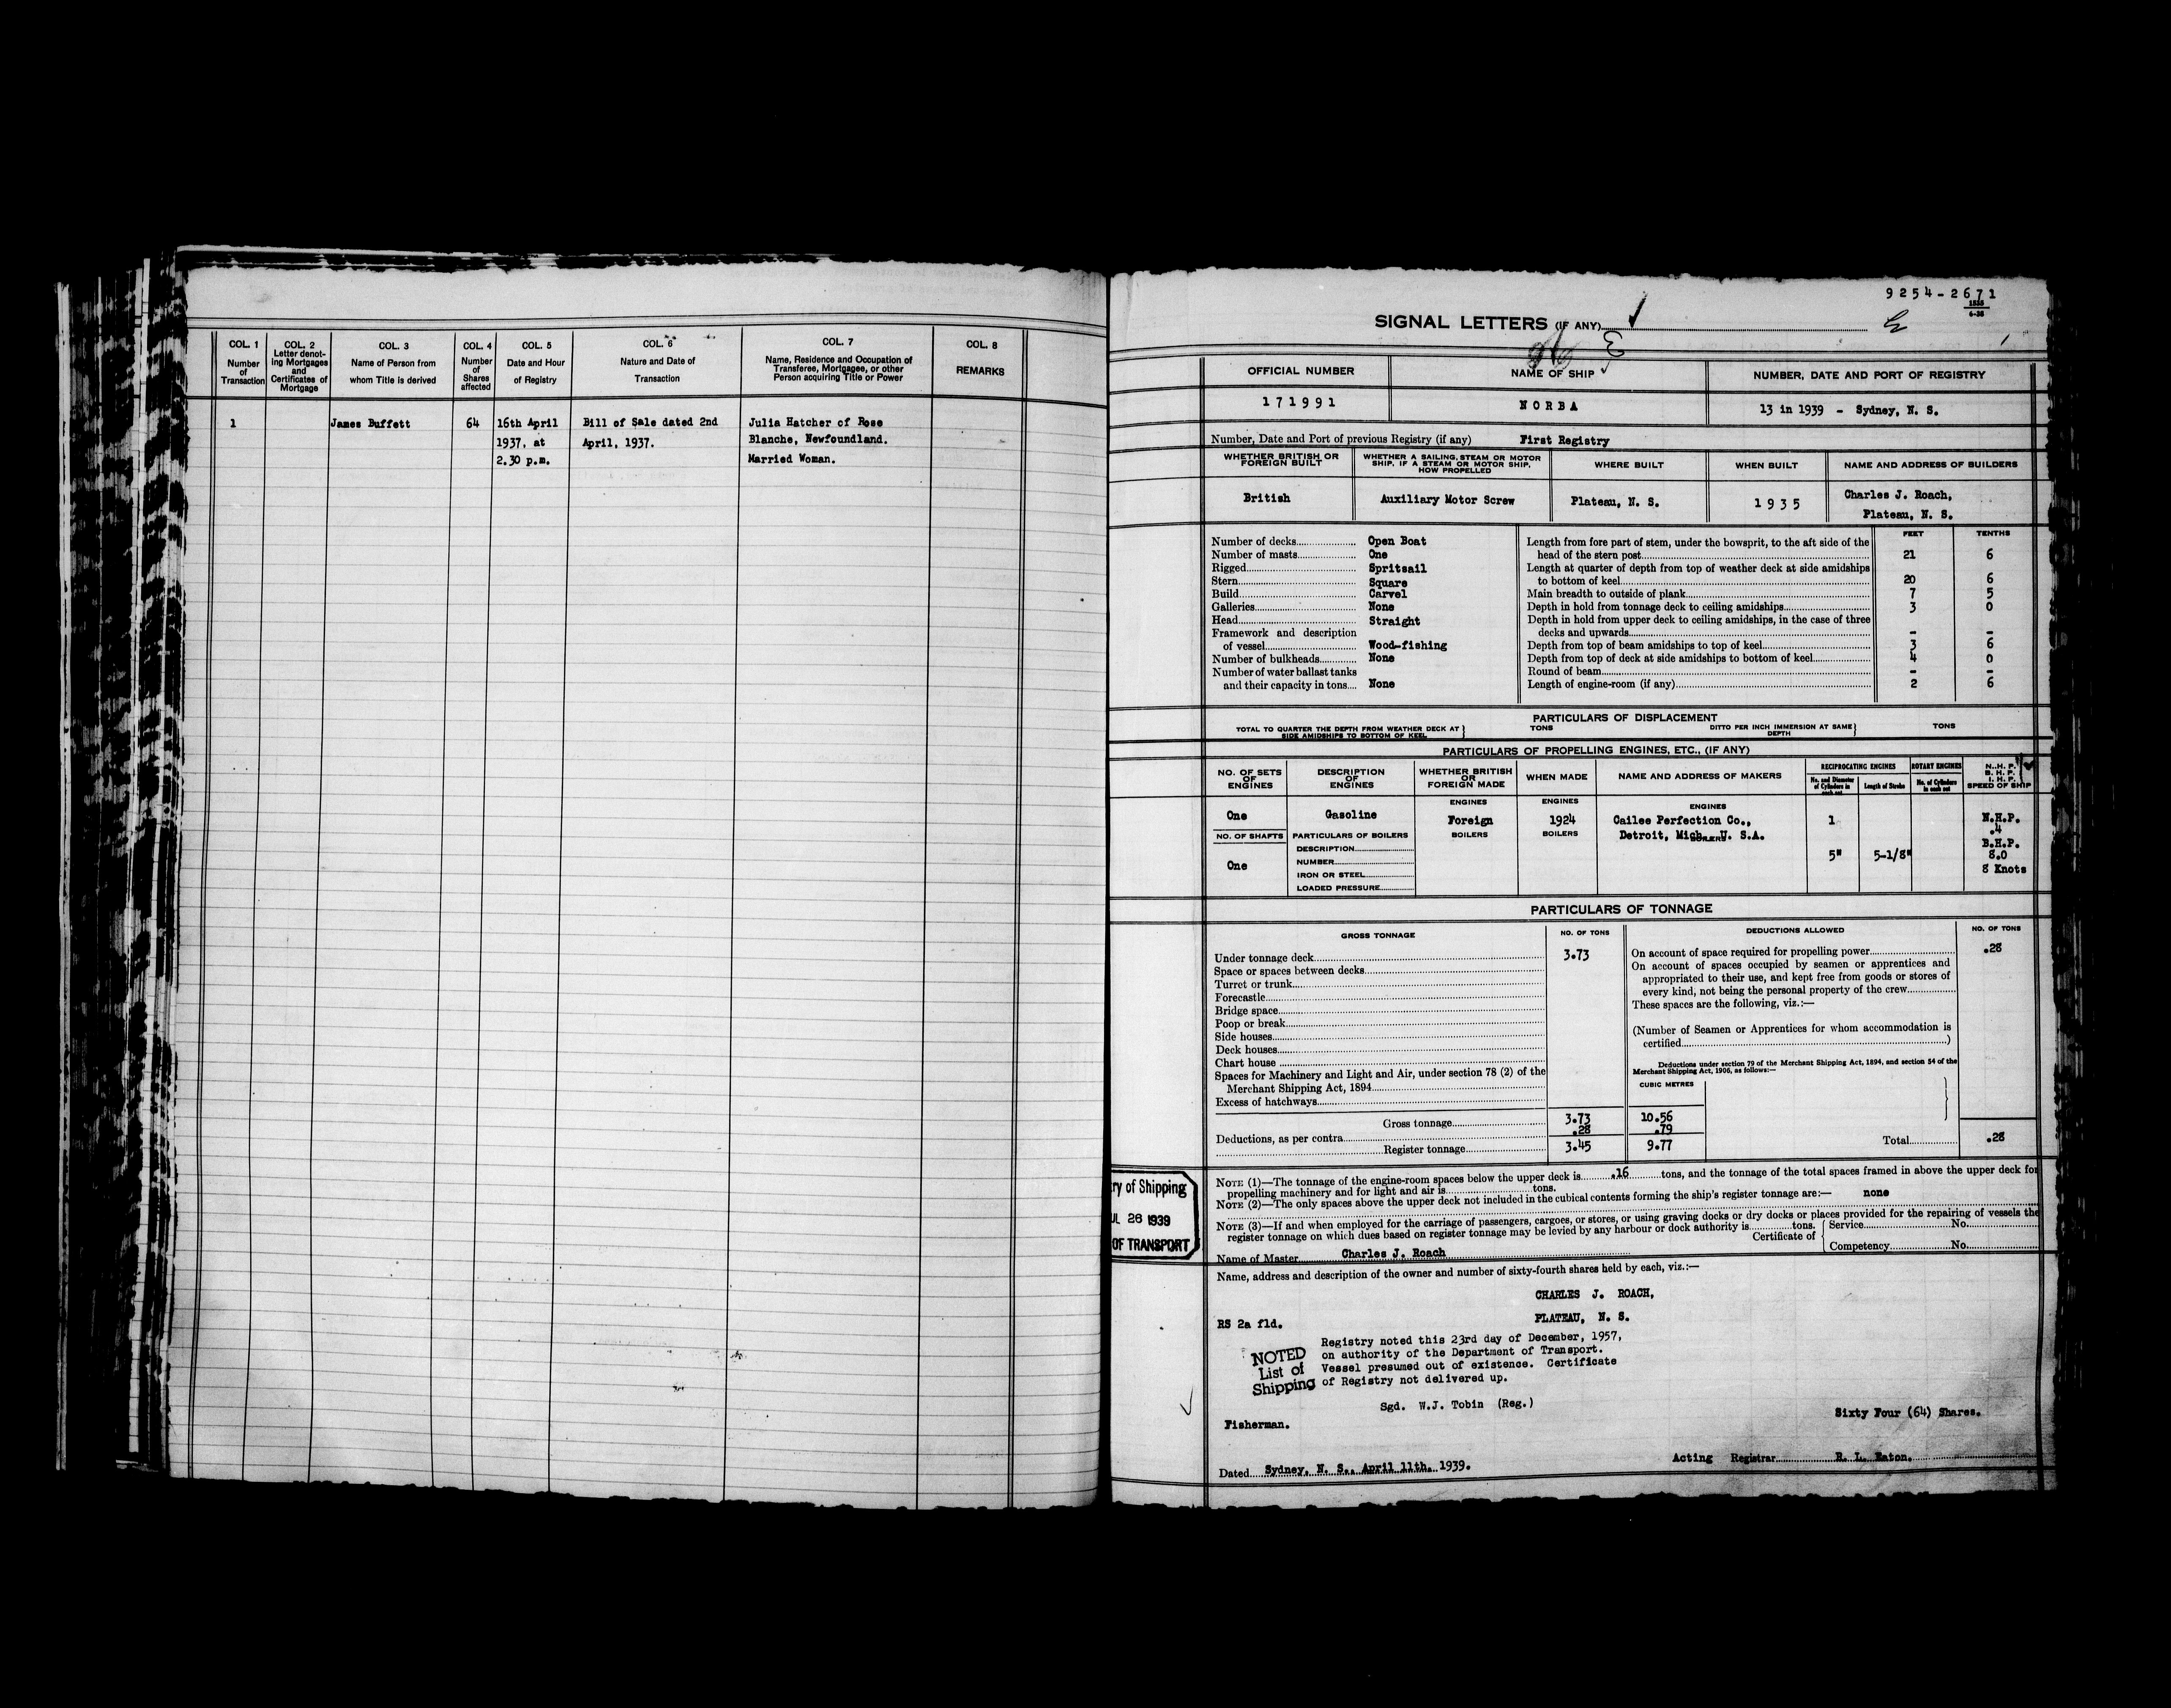 COL. 1
Number
of
Transaction
COL. 2
Letter denot-
ing Mortgages
and
Certificates of
Mortgage
COL. 3
Name of Person from
whom Title is derived
COL. 4
Number
of
Shares
affected
COL. 5
Date and Hour
of Registry
COL. 6
Nature and Date of
Transaction
COL. 7
Name, Residence and Occupation of
Transferee, Mortgagee, or other
Person acquiring Title or Power
COL. 8
REMARKS
1
James Buffett
64
16th April
1937. at
2.30 p.m.
Bill of Sale dated 2nd
April, 1937.
Julia Hatcher of Rose
Blanche, Newfoundland.
Married Woman.
9254-2671
SIGNAL LETTERS (IF ANY)
OFFICIAL NUMBER
NAME OF SHIP
NUMBER, DATE AND PORT OF REGISTRY
171991
NORBA
13 in 1939 - Sydney, N. S.
Number, Date and Port of previous Registry (if any) First Registry
WHETHER BRITISH OR
FOREIGN BUILT
WHETHER A SAILING, STEAM OR MOTOR
SHIP. IF A STEAM OR MOTOR SHIP,
HOW PROPELLED
WHERE BUILT
WHEN BUILT
NAME AND ADDRESS OF BUILDERS
British
Auxiliary Motor Screw
Plateau, N. S.
1935
Charles J. Roach,
Plateau, N. S.
FEET
TENTHS
Number of decks Open Boat
Number of masts One
Rigged Spritsail
Stern Square
Build Carvel
Galleries None
Head Straight
Framework and description
of vessel Wood-fishing
Number of bulkheads None
Number of water ballast tanks
and their capacity in tons None
Length from fore part of stem, under the bowsprit, to the aft side of the
head of the stern post 21 6
Length at quarter of depth from top of weather deck at side amidships
to bottom of keel 20 6
Main breadth to outside of plank 7 5
Depth in hold from tonnage deck to ceiling amidships 3 0
Depth in hold from upper deck to ceiling amidships, in the case of three
decks and upwards - -
Depth from top of beam amidships to top of keel 3 6
Depth from top of deck at side amidships to bottom of keel 4 0
Round of beam - -
Length of engine-room (if any) 2 6
PARTICULARS OF DISPLACEMENT
TOTAL TO QUARTER THE DEPTH FROM WEATHER DECK AT
SIDE AMIDSHIPS TO BOTTOM OF KEEL
TONS
DITTO PER INCH IMMERSION AT SAME
DEPTH
TONS
PARTICULARS OF PROPELLING ENGINES, ETC., (IF ANY)
NO. OF SETS
OF
ENGINES
DESCRIPTION
OF
ENGINES
WHETHER BRITISH
OR
FOREIGN MADE
WHEN MADE
NAME AND ADDRESS OF MAKERS
RECIPROCATING ENGINES
No. and Diameter
of Cylinders in
each set
Length of Stroke
ROTARY ENGINES
No. of Cylinders
in each set
N.H.P.
B.H.P.
I.H.P.
SPEED OF SHIP
One
Gasoline
ENGINES
Foreign
ENGINES
1924
ENGINES
Cailee Perfection Co.,
Detroit, Mich. U. S.A.
1
N.H.P.
.4
B.H.P.
8.0
8 Knots
NO. OF SHAFTS
One
PARTICULARS OF BOILERS
DESCRIPTION
NUMBER
IRON OR STEEL
LOADED PRESSURE
BOILERS
BOILERS
BOILERS
5"
5-1/8"
PARTICULARS OF TONNAGE
GROSS TONNAGE
NO. OF TONS
DEDUCTIONS ALLOWED
NO. OF TONS
Under tonnage deck 3.73
Space or spaces between decks
Turret or trunk
Forecastle
Bridge space
Poop or break
Side houses
Deck houses
Chart house
Spaces for Machinery and Light and Air, under section 78 (2) of the
Merchant Shipping Act, 1894
Excess of hatchways
Gross tonnage 3.73 10.56
Deductions, as per contra .28 .79
Register tonnage 3.45 9.77
On account of space required for propelling power .28
On account of spaces occupied by seamen or apprentices and
appropriated to their use, and kept free from goods or stores of
every kind, not being the personal property of the crew
These spaces are the following, viz.:—
(Number of Seamen or Apprentices for whom accommodation is
certified )
Deductions under section 79 of the Merchant Shipping Act, 1894, and section 54 of the
Merchant Shipping Act, 1906, as follows:—
CUBIC METRES
Total .28
NOTE (1)—The tonnage of the engine-room spaces below the upper deck is .16 tons, and the tonnage of the total spaces framed in above the upper deck for
propelling machinery and for light and air is tons.
NOTE (2)—The only spaces above the upper deck not included in the cubical contents forming the ship's register tonnage are:— none
NOTE (3)—If and when employed for the carriage of passengers, cargoes, or stores, or using graving docks or dry docks or places provided for the repairing of vessels the
register tonnage on which dues based on register tonnage may be levied by any harbour or dock authority is tons.
Certificate of
Service No.
Competency No.
ry of Shipping
UL 26 1939
OF TRANSPORT
Name of Master Charles J. Roach
Name, address and description of the owner and number of sixty-fourth shares held by each, viz.:—
CHARLES J. ROACH,
PLATEAU, N. S.
RS 2a fld.
Registry noted this 23rd day of December, 1957,
on authority of the Department of Transport.
Vessel presumed out of existence. Certificate
of Registry not delivered up.
NOTED
List of
Shipping
Sgd. W.J. Tobin (Reg.)
Fisherman.
Sixty Four (64) Shares.
Dated Sydney, N. S., April 11th. 1939.
Acting Registrar R. L. Eaton.